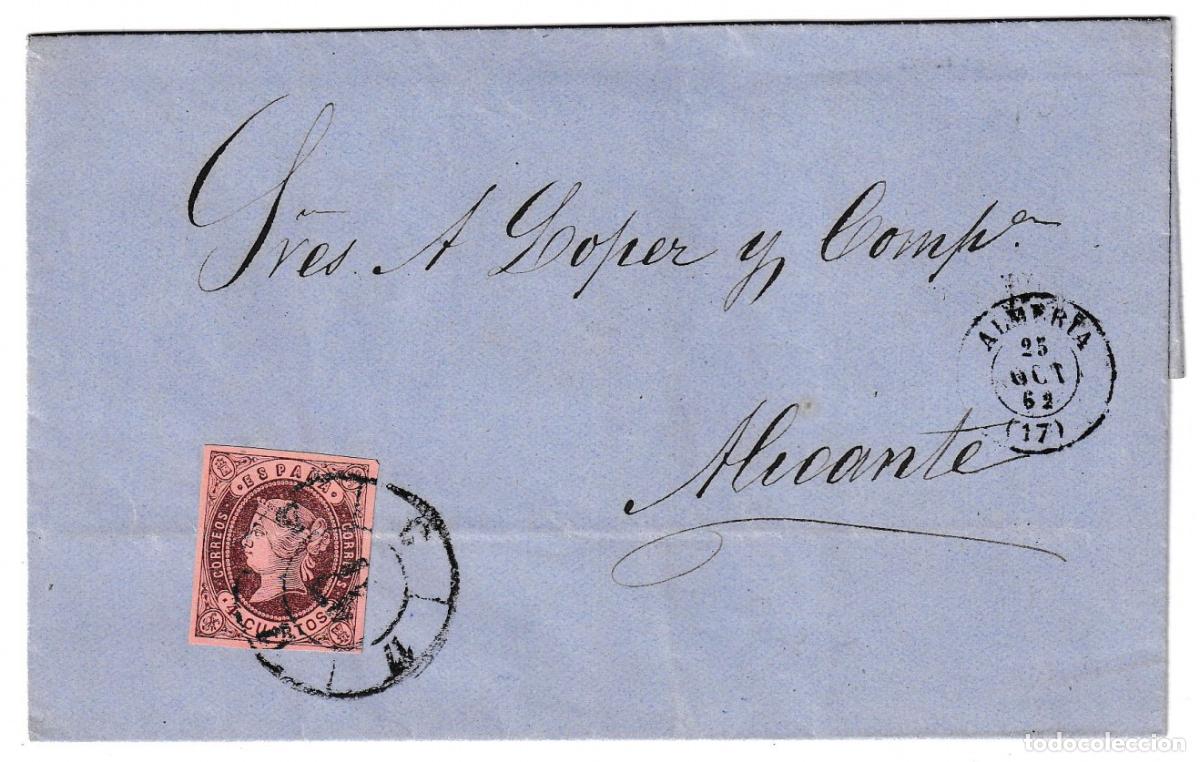 Sres. A Lopez y Compª
Alicante
ALMERIA
25
OCT
62
(17)
ESPAÑA
CORREOS
CORREOS
4 CUARTOS
17
todocoleccion